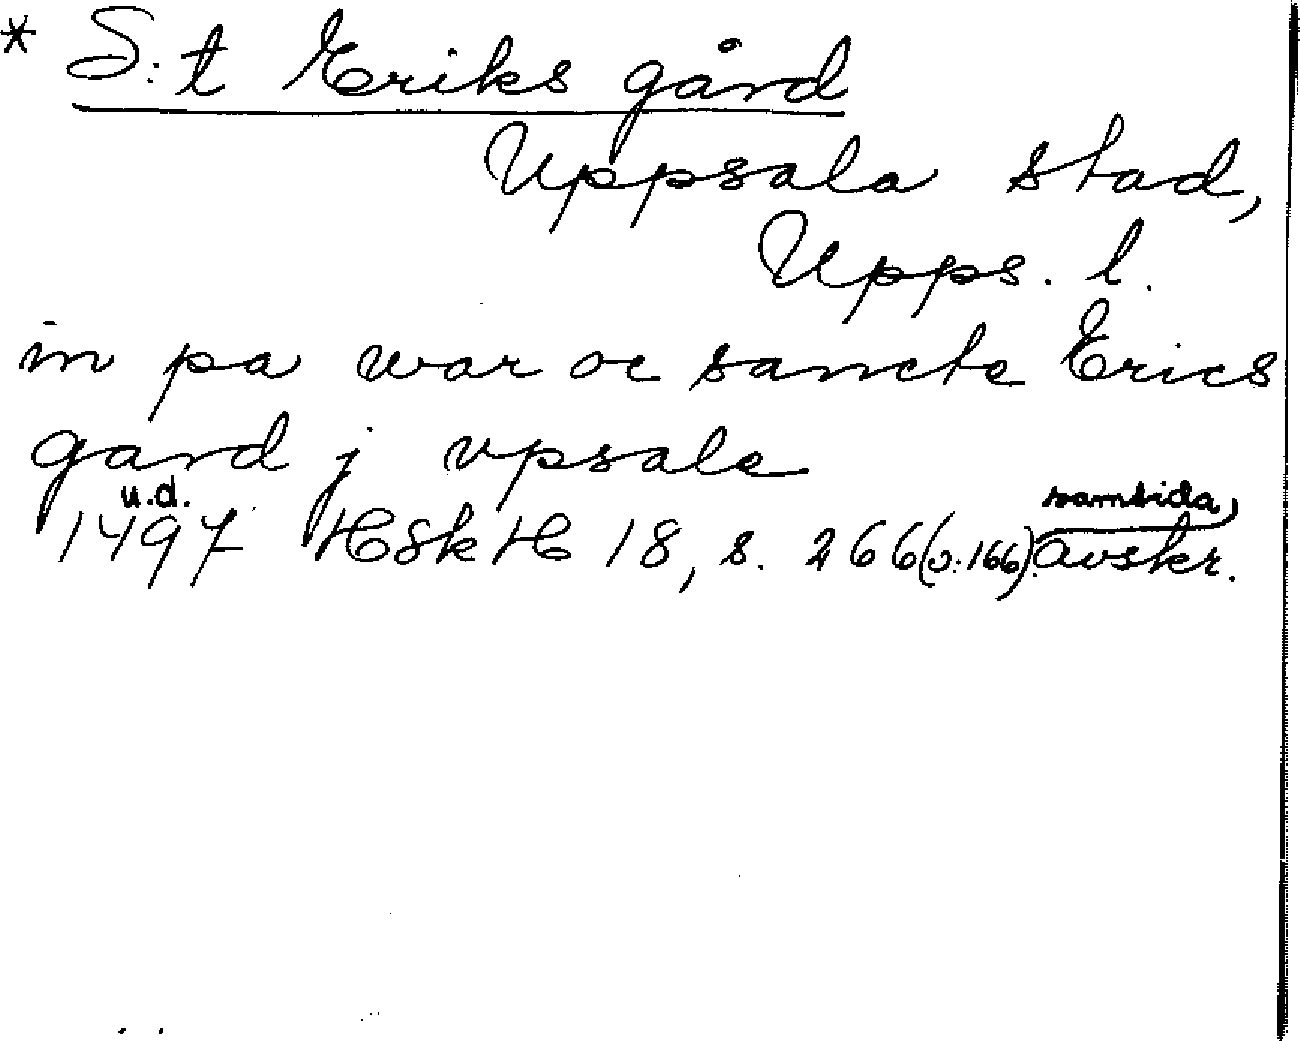 * S:t Eriks gård
Uppsala stad,
Upps. l.
in pa war oc sancte Erics
gard j vpsale
u.d. samtida,
1497 HSkH 18, s. 266 (ɔ: 166). avskr.